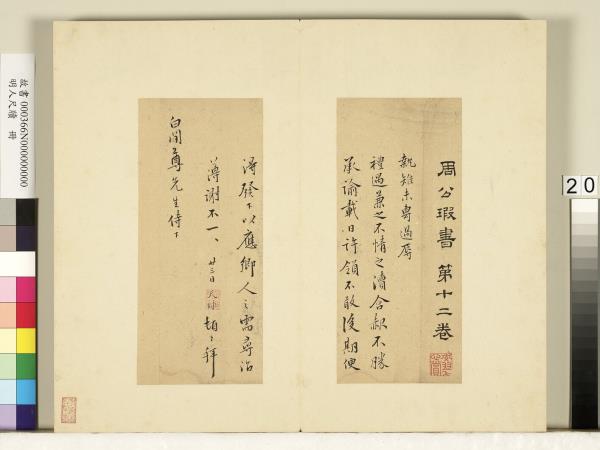 周公瑕書 第十二卷
執雉未專過辱
禮過兼之不情之瀆合赧不勝
承諭載日許領不敢後期便
得發下以應鄉人之需尋沽
薄謝不一、廿三日 頓頓拜
白閒尊先生侍下
故書 000366N000000000
明人尺牘 冊
20